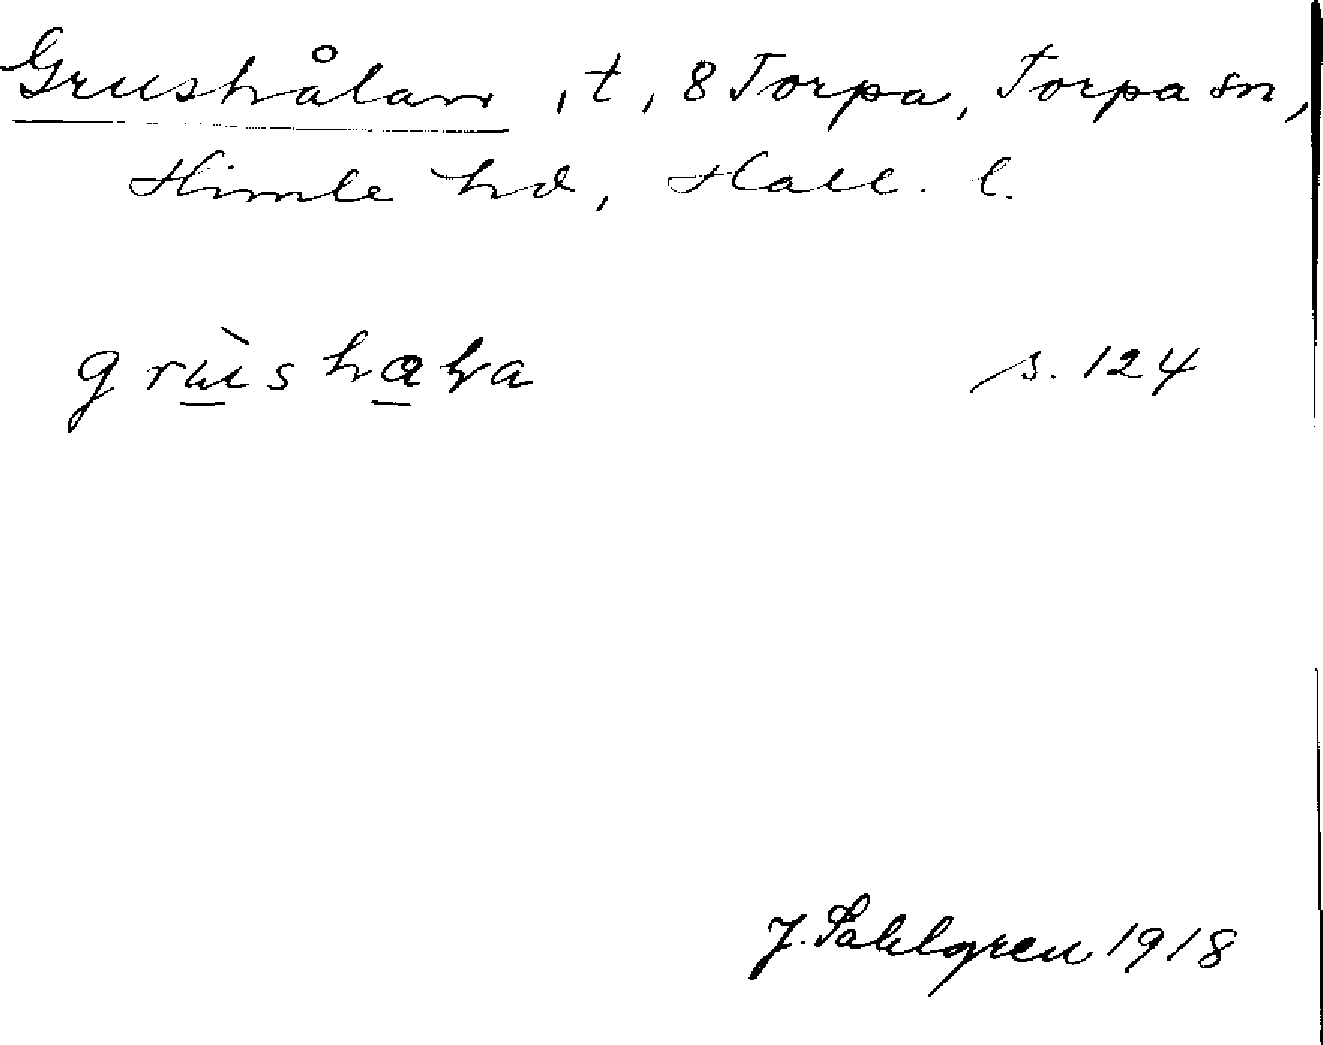 Grushålan, t, 8 Torpa, Torpa sn,
Himle hd, Hall. l.
grùshała s. 124
J. Sahlgren 1918